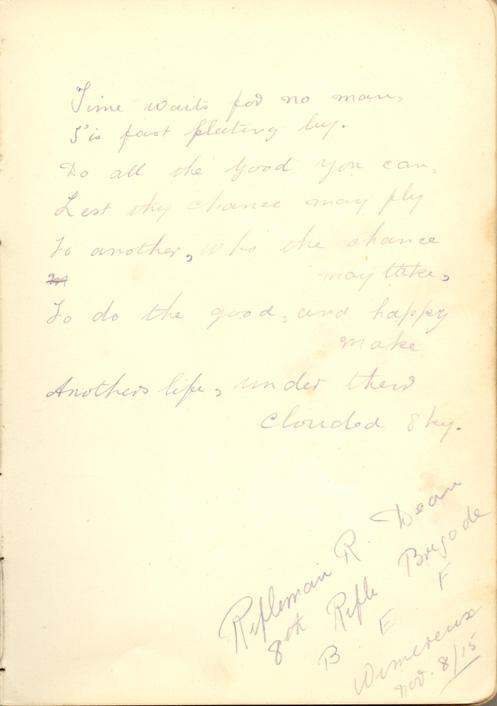 Time waits for no man,
T'is fast fleeting by.
Do all the good you can,
Lest thy chance may fly
To another, who the chance
may take,
To do the good, and happy
make
Anothers life, under their
clouded sky.
Rifleman R. Dean
8th Rifle Brigade
B E F
Wimereux
Nov. 8/15